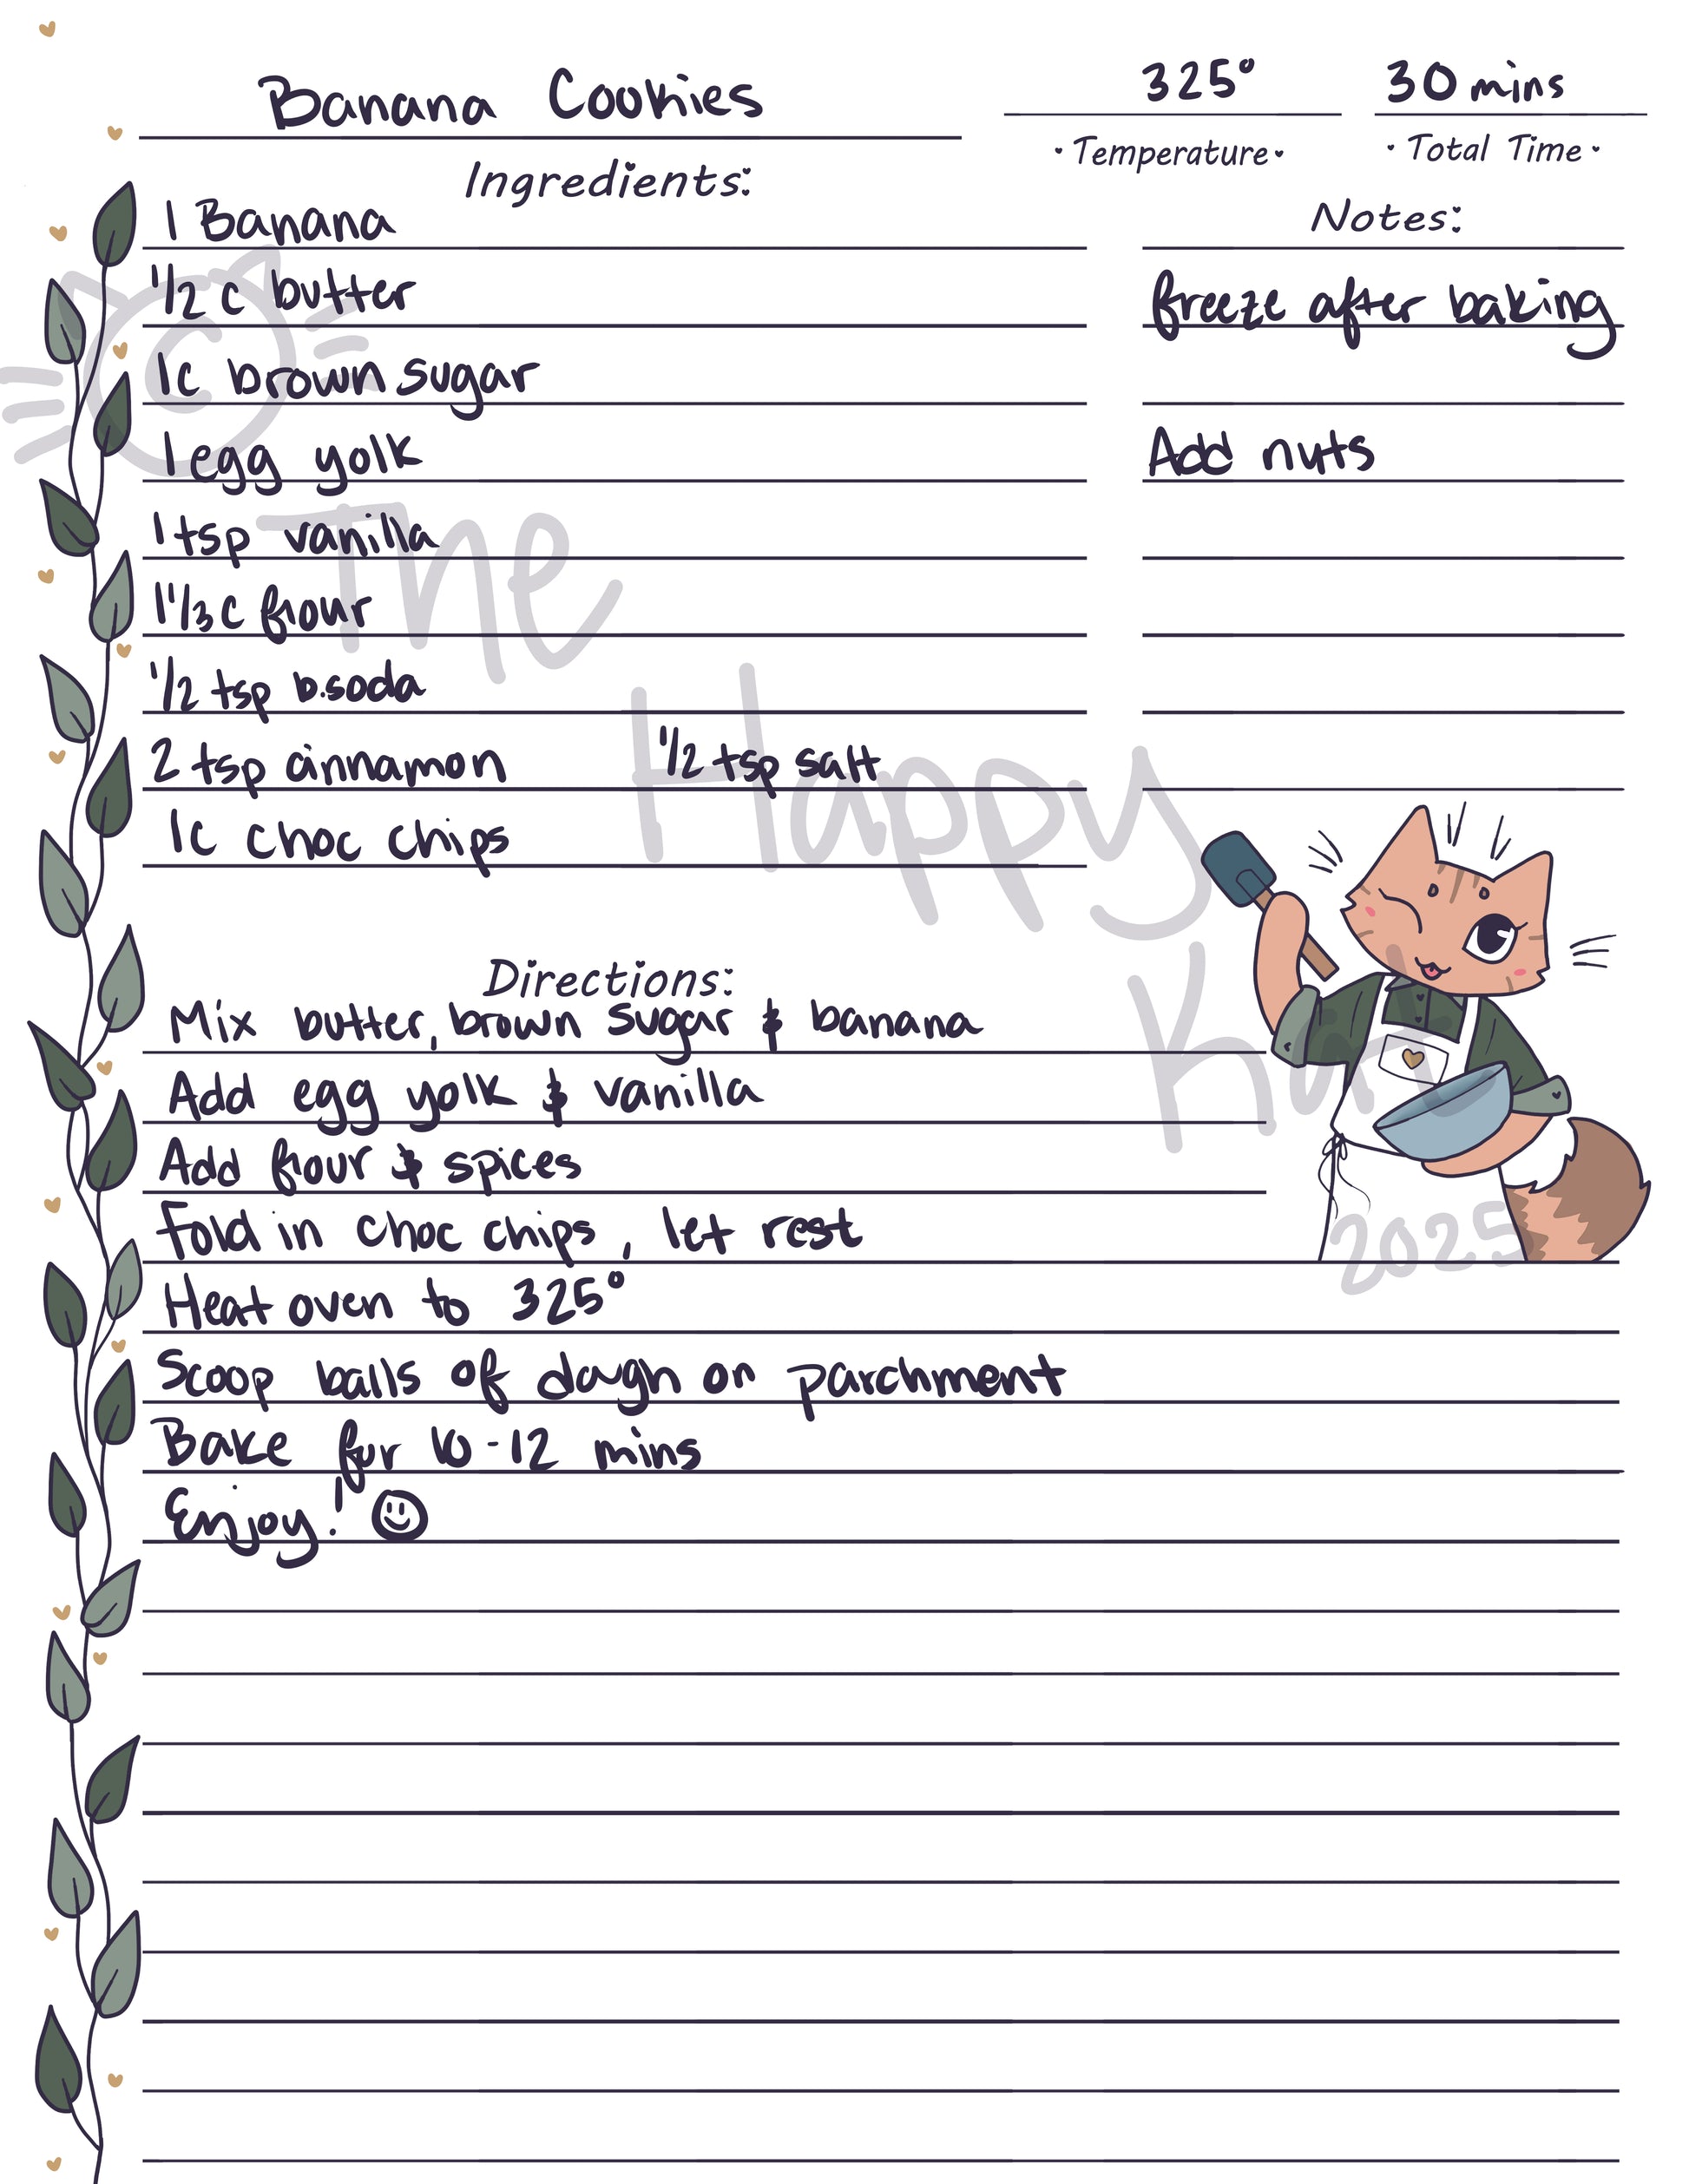 Banana Cookies
325°
30 mins
Temperature
Total Time
Ingredients:
1 Banana
1/2 c butter
1c brown sugar
1 egg yolk
1 tsp vanilla
1 1/3 c flour
1/2 tsp b.soda
2 tsp cinnamon 1/2 tsp salt
1c choc chips
Notes:
freeze after baking
Add nuts
Directions:
Mix butter, brown sugar & banana
Add egg yolk & vanilla
Add flour & spices
Fold in choc chips, let rest
Heat oven to 325°
Scoop balls of dough on parchment
Bake for 10-12 mins
Enjoy!
©
The
Happy
2025